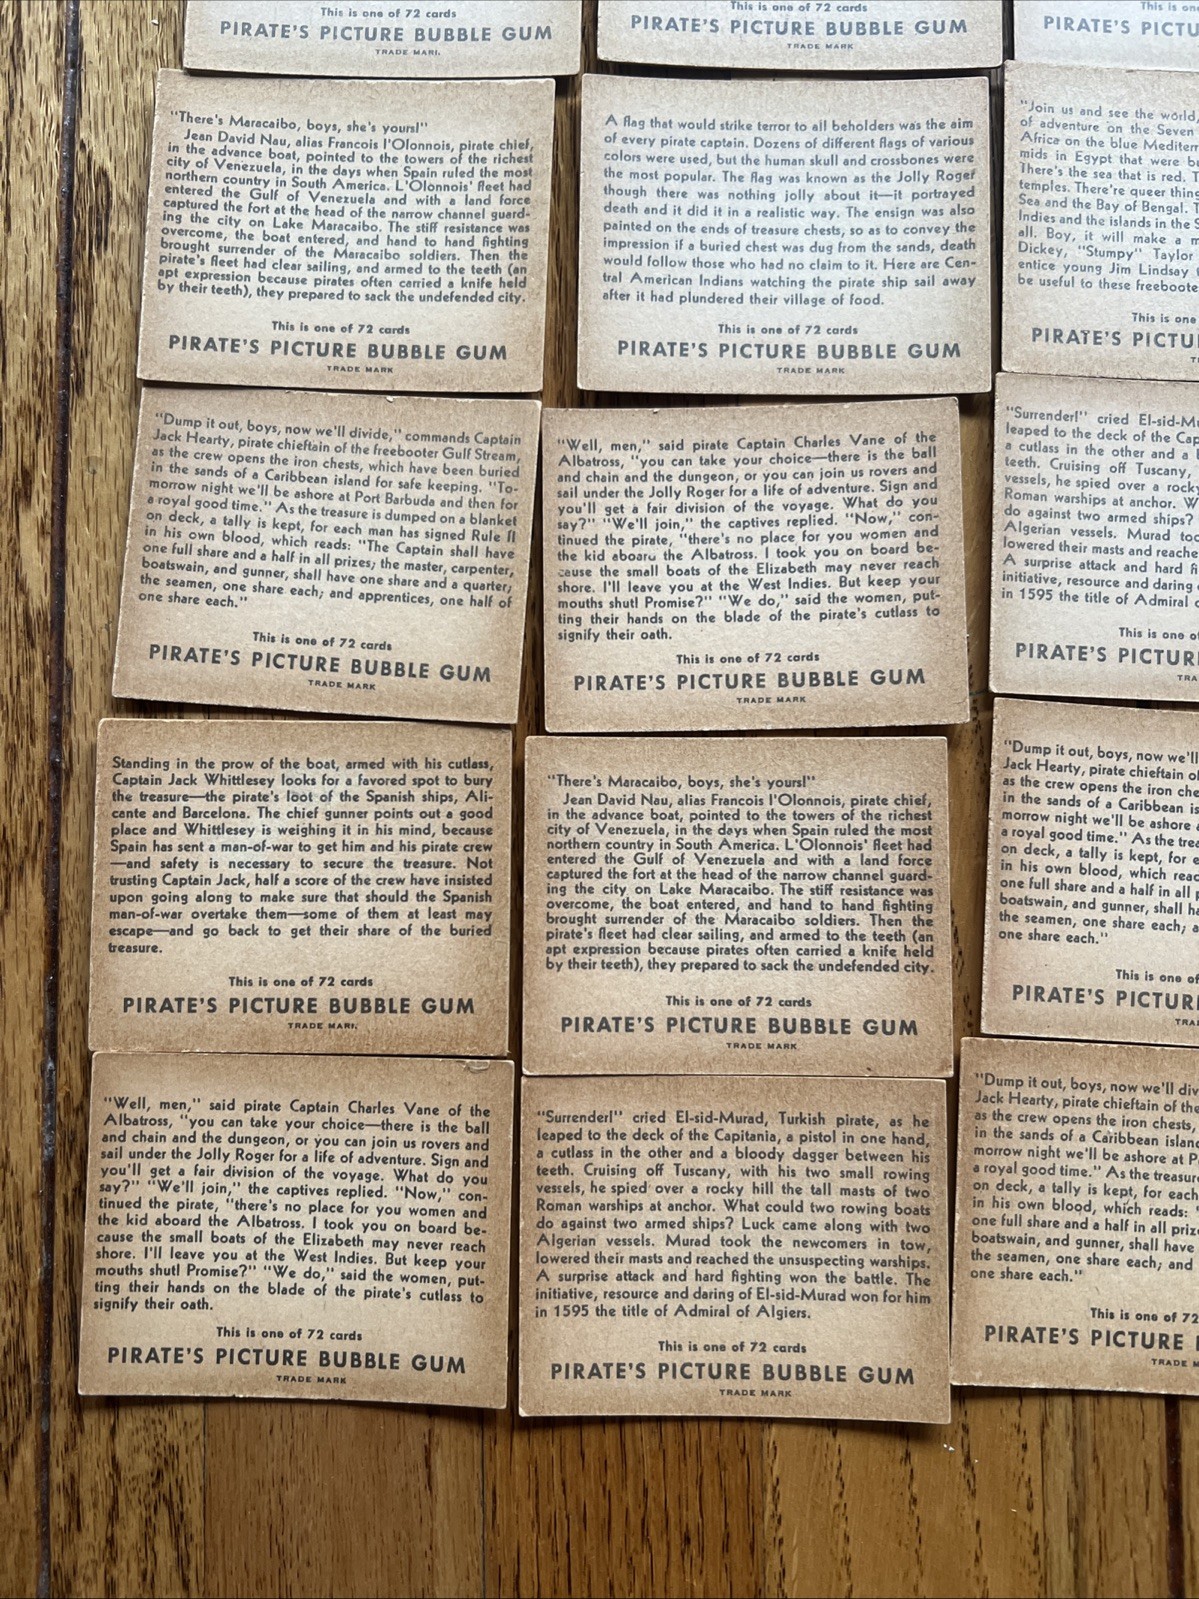 This is one of 72 cards
PIRATE'S PICTURE BUBBLE GUM
TRADE MARK
This is one of 72 cards
PIRATE'S PICTURE BUBBLE GUM
TRADE MARK
This is one
PIRATE'S PICTU
"There's Maracaibo, boys, she's yours!"
Jean David Nau, alias Francois l'Olonnois, pirate chief,
in the advance boat, pointed to the towers of the richest
city of Venezuela, in the days when Spain ruled the most
northern country in South America. L'Olonnois' fleet had
entered the Gulf of Venezuela and with a land force
captured the fort at the head of the narrow channel guard-
ing the city on Lake Maracaibo. The stiff resistance was
overcome, the boat entered, and hand to hand fighting
brought surrender of the Maracaibo soldiers. Then the
pirate's fleet had clear sailing, and armed to the teeth (an
apt expression because pirates often carried a knife held
by their teeth), they prepared to sack the undefended city.
This is one of 72 cards
PIRATE'S PICTURE BUBBLE GUM
TRADE MARK
A flag that would strike terror to all beholders was the aim
of every pirate captain. Dozens of different flags of various
colors were used, but the human skull and crossbones were
the most popular. The flag was known as the Jolly Roger
though there was nothing jolly about it—it portrayed
death and it did it in a realistic way. The ensign was also
painted on the ends of treasure chests, so as to convey the
impression if a buried chest was dug from the sands, death
would follow those who had no claim to it. Here are Cen-
tral American Indians watching the pirate ship sail away
after it had plundered their village of food.
This is one of 72 cards
PIRATE'S PICTURE BUBBLE GUM
TRADE MARK
"Join us and see the world,
of adventure on the Seven
Africa on the blue Mediterr
mids in Egypt that were b
There's the sea that is red. T
temples. There're queer thing
Sea and the Bay of Bengal. T
Indies and the islands in the S
all. Boy, it will make a m
Dickey, "Stumpy" Taylor
entice young Jim Lindsay
be useful to these freeboote
This is one
PIRATE'S PICTU
"Dump it out, boys, now we'll divide," commands Captain
Jack Hearty, pirate chieftain of the freebooter Gulf Stream,
as the crew opens the iron chests, which have been buried
in the sands of a Caribbean island for safe keeping. "To-
morrow night we'll be ashore at Port Barbuda and then for
a royal good time." As the treasure is dumped on a blanket
on deck, a tally is kept, for each man has signed Rule II
in his own blood, which reads: "The Captain shall have
one full share and a half in all prizes; the master, carpenter,
boatswain, and gunner, shall have one share and a quarter;
the seamen, one share each; and apprentices, one half of
one share each."
This is one of 72 cards
PIRATE'S PICTURE BUBBLE GUM
TRADE MARK
"Well, men," said pirate Captain Charles Vane of the
Albatross, "you can take your choice—there is the ball
and chain and the dungeon, or you can join us rovers and
sail under the Jolly Roger for a life of adventure. Sign and
you'll get a fair division of the voyage. What do you
say?" "We'll join," the captives replied. "Now," con-
tinued the pirate, "there's no place for you women and
the kid aboard the Albatross. I took you on board be-
cause the small boats of the Elizabeth may never reach
shore. I'll leave you at the West Indies. But keep your
mouths shut! Promise?" "We do," said the women, put-
ting their hands on the blade of the pirate's cutlass to
signify their oath.
This is one of 72 cards
PIRATE'S PICTURE BUBBLE GUM
TRADE MARK
"Surrender!" cried El-sid-Mu
leaped to the deck of the Cap
a cutlass in the other and a b
teeth. Cruising off Tuscany,
vessels, he spied over a rocky
Roman warships at anchor. W
do against two armed ships?
Algerian vessels. Murad too
lowered their masts and reache
A surprise attack and hard f
initiative, resource and daring
in 1595 the title of Admiral o
This is one of
PIRATE'S PICTUR
TRA
Standing in the prow of the boat, armed with his cutlass,
Captain Jack Whittlesey looks for a favored spot to bury
the treasure—the pirate's loot of the Spanish ships, Ali-
cante and Barcelona. The chief gunner points out a good
place and Whittlesey is weighing it in his mind, because
Spain has sent a man-of-war to get him and his pirate crew
—and safety is necessary to secure the treasure. Not
trusting Captain Jack, half a score of the crew have insisted
upon going along to make sure that should the Spanish
man-of-war overtake them—some of them at least may
escape—and go back to get their share of the buried
treasure.
This is one of 72 cards
PIRATE'S PICTURE BUBBLE GUM
TRADE MARK
"There's Maracaibo, boys, she's yours!"
Jean David Nau, alias Francois l'Olonnois, pirate chief,
in the advance boat, pointed to the towers of the richest
city of Venezuela, in the days when Spain ruled the most
northern country in South America. L'Olonnois' fleet had
entered the Gulf of Venezuela and with a land force
captured the fort at the head of the narrow channel guard-
ing the city on Lake Maracaibo. The stiff resistance was
overcome, the boat entered, and hand to hand fighting
brought surrender of the Maracaibo soldiers. Then the
pirate's fleet had clear sailing, and armed to the teeth (an
apt expression because pirates often carried a knife held
by their teeth), they prepared to sack the undefended city.
This is one of 72 cards
PIRATE'S PICTURE BUBBLE GUM
TRADE MARK
"Dump it out, boys, now we'll
Jack Hearty, pirate chieftain of
as the crew opens the iron che
in the sands of a Caribbean is
morrow night we'll be ashore
a royal good time." As the trea
on deck, a tally is kept, for e
in his own blood, which reac
one full share and a half in all p
boatswain, and gunner, shall ha
the seamen, one share each; a
one share each."
This is one of
PIRATE'S PICTUR
TRA
"Well, men," said pirate Captain Charles Vane of the
Albatross, "you can take your choice—there is the ball
and chain and the dungeon, or you can join us rovers and
sail under the Jolly Roger for a life of adventure. Sign and
you'll get a fair division of the voyage. What do you
say?" "We'll join," the captives replied. "Now," con-
tinued the pirate, "there's no place for you women and
the kid aboard the Albatross. I took you on board be-
cause the small boats of the Elizabeth may never reach
shore. I'll leave you at the West Indies. But keep your
mouths shut! Promise?" "We do," said the women, put-
ting their hands on the blade of the pirate's cutlass to
signify their oath.
This is one of 72 cards
PIRATE'S PICTURE BUBBLE GUM
TRADE MARK
"Surrender!" cried El-sid-Murad, Turkish pirate, as he
leaped to the deck of the Capitania, a pistol in one hand,
a cutlass in the other and a bloody dagger between his
teeth. Cruising off Tuscany, with his two small rowing
vessels, he spied over a rocky hill the tall masts of two
Roman warships at anchor. What could two rowing boats
do against two armed ships? Luck came along with two
Algerian vessels. Murad took the newcomers in tow,
lowered their masts and reached the unsuspecting warships.
A surprise attack and hard fighting won the battle. The
initiative, resource and daring of El-sid-Murad won for him
in 1595 the title of Admiral of Algiers.
This is one of 72 cards
PIRATE'S PICTURE BUBBLE GUM
TRADE MARK
"Dump it out, boys, now we'll div
Jack Hearty, pirate chieftain of the
as the crew opens the iron chests,
in the sands of a Caribbean island
morrow night we'll be ashore at P
a royal good time." As the treasure
on deck, a tally is kept, for each
in his own blood, which reads: "
one full share and a half in all prize
boatswain, and gunner, shall have
the seamen, one share each; and
one share each."
This is one of 72
PIRATE'S PICTURE
TRADE M